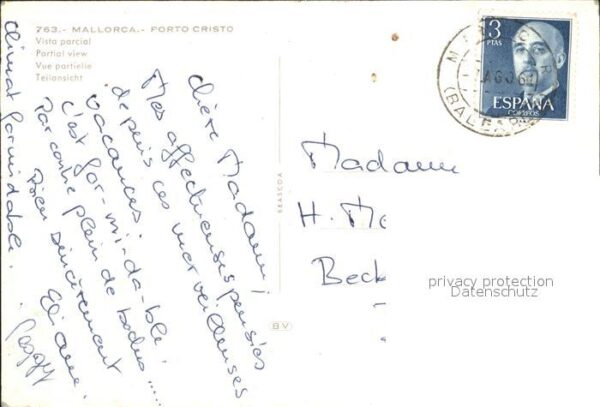 763.- MALLORCA.- PORTO CRISTO
Vista parcial
Partial view
Vue partielle
Teilansicht
Chère Madame,
Mes affectueuses pensées
depuis ces merveilleuses
vacances.
C'est for-mi-da-ble!
Par contre plein de boches.....
Bien sincèrement
Eliane
Climat formidable.
BEASCOA
BV
3
PTAS
ESPAÑA
CORREOS
(BALEAR
Madame
H. Me
Beck
privacy protection
Datenschutz